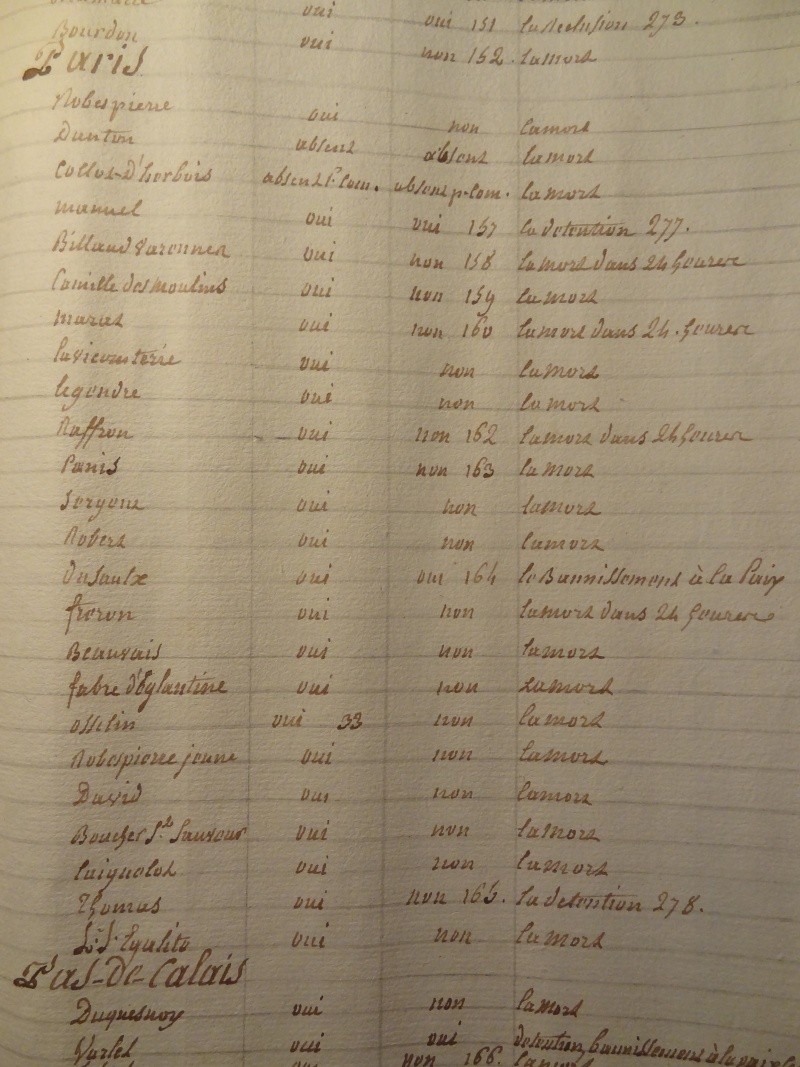 oui oui 151 la reclusion 273.
Bourdon oui non 152. la mort
Paris
Robespierre oui non la mort
Danton absent absent la mort
Collot-D'herbois absent p. Com. absent p. Com. la mort
manuel oui oui 157 la detention 277.
Billaud Varennes oui non 158 la mort dans 24 heures
Camille des moulins oui non 159 la mort
marat oui non 160 la mort dans 24. heures
lavicomterie oui non la mort
legendre oui non la mort
Raffron oui non 162 la mort dans 24 heures
Panis oui non 163 la mort
Sergent oui non la mort
Robert oui non la mort
dusaulx oui oui 164 le Bannissement à la Paix
freron oui non la mort dans 24 heures
Beauvais oui non la mort
fabre d'Eglantine oui non la mort
osselin oui 33 non la mort
Robespierre jeune oui non la mort
David oui non la mort
Boucher St. Sauveur oui non la mort
Laignelot oui non la mort
Thomas oui non 165. la detention 278.
Egalité oui non la mort
Pas-de-Calais
Duquesnoy oui non la mort
Varlet oui oui detention, bannissement à la paix
oui non 166. la mort